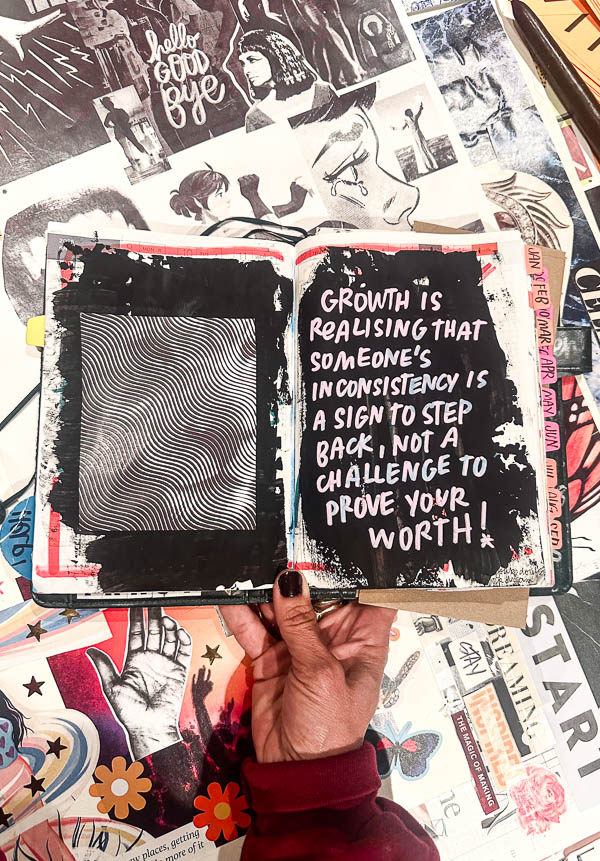 hello
GOOD
bye
GROWTH IS
REALISING THAT
SOMEONE'S
INCONSISTENCY IS
A SIGN TO STEP
BACK, NOT A
CHALLENGE TO
PROVE YOUR
WORTH!
JAN
FEB
MAR
APR
MAY
JUN
START
DREAMING
GAY
INSPIRE
THE MAGIC OF MAKING
new places, getting
more of it